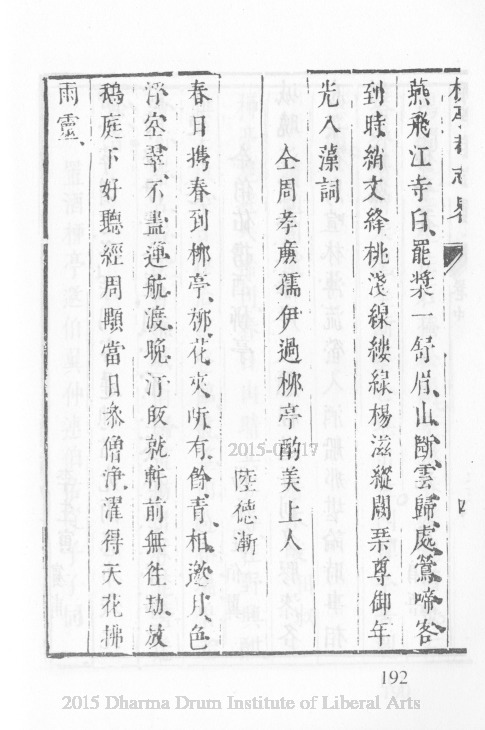 志畧 四
燕飛江寺白、罷槳一舒眉、山斷雲歸處、鶯啼客
到時、綃文絳桃淺線縷綠楊滋縱闕琹尊御年
光入藻詞
仝周孝廉孺伊過柳亭酌美上人
陸德漸
春日携春到柳亭、柳花夾听有餘青、相邀月色
浮空翠、不盡蓮航渡晚汀飯就軒前無徃劫、放
鵝庭下好聽經周顒當日叅僧淨、濯得天花拂
雨靈、
192
2015 Dharma Drum Institute of Liberal Arts